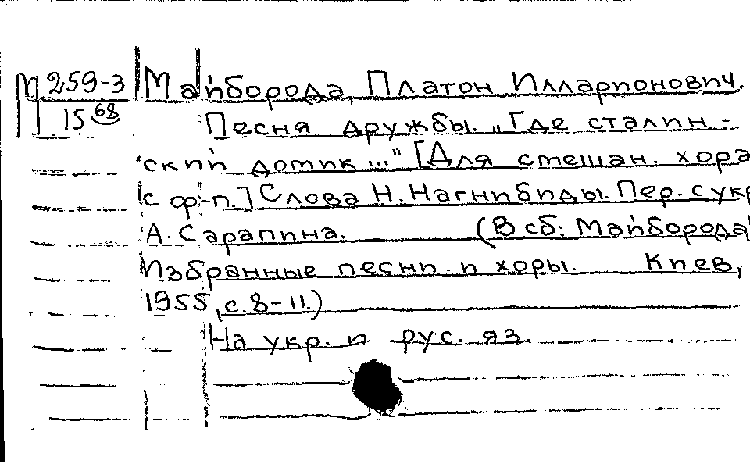 М 259-3
15 68
Майборода, Платон Илларионович.
Песня дружбы. „Где сталин-
ский домик..." [Для смешан. хора
с ф-п.] Слова Н. Нагнибиды. Пер. с укр.
А. Сарапина. (В сб: Майборода
Избранные песни и хоры. Киев,
1955, с. 8-11.)
На укр. и рус. яз.